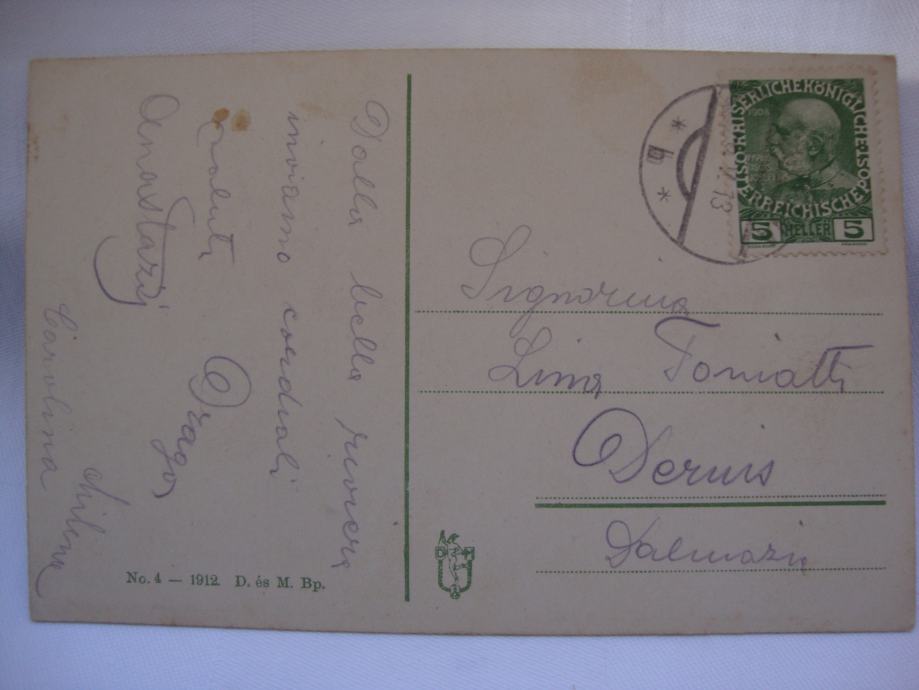 Dalla bella riviera
inviamo cordiali
saluti
Drago
Anastazij
Carolina
Milena
Signorina
Lina Toniatti
Dernis
Dalmazia
No. 4 — 1912 D. és M. Bp.
D M
KAISERLICHEKÖNIGLICHE
ÖSTERREICHISCHE POST
1908 1908
5 HELLER 5
* b *
13